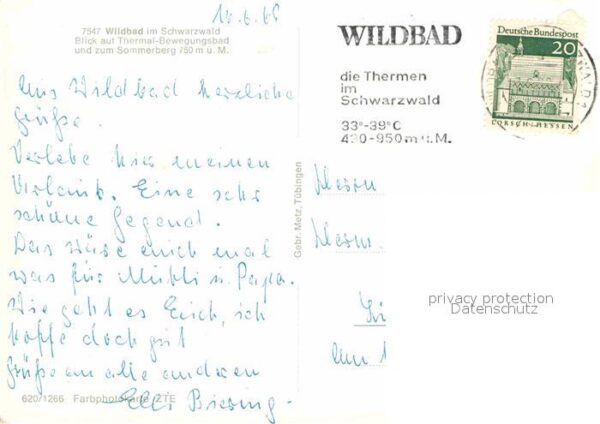 7547 Wildbad im Schwarzwald
Blick auf Thermal-Bewegungsbad
und zum Sommerberg 750 m ü. M.
Aus Wildbad herzliche
Grüße.
Verlebe hier meinen
Urlaub. Eine sehr
schöne Gegend.
Das wäre auch mal
was für Mutti u. Papa.
Wie geht es Euch, ich
hoffe doch gut
Grüße an alle anderen
Elli
620/1266 Farbphotokarte
Gebr. Metz, Tübingen
WILDBAD
die Thermen
im
Schwarzwald
33°-39°C
430-950m ü.M.
Deutsche Bundespost
20
LORSCH/HESSEN
Herrn
Herm.
privacy protection
Datenschutz